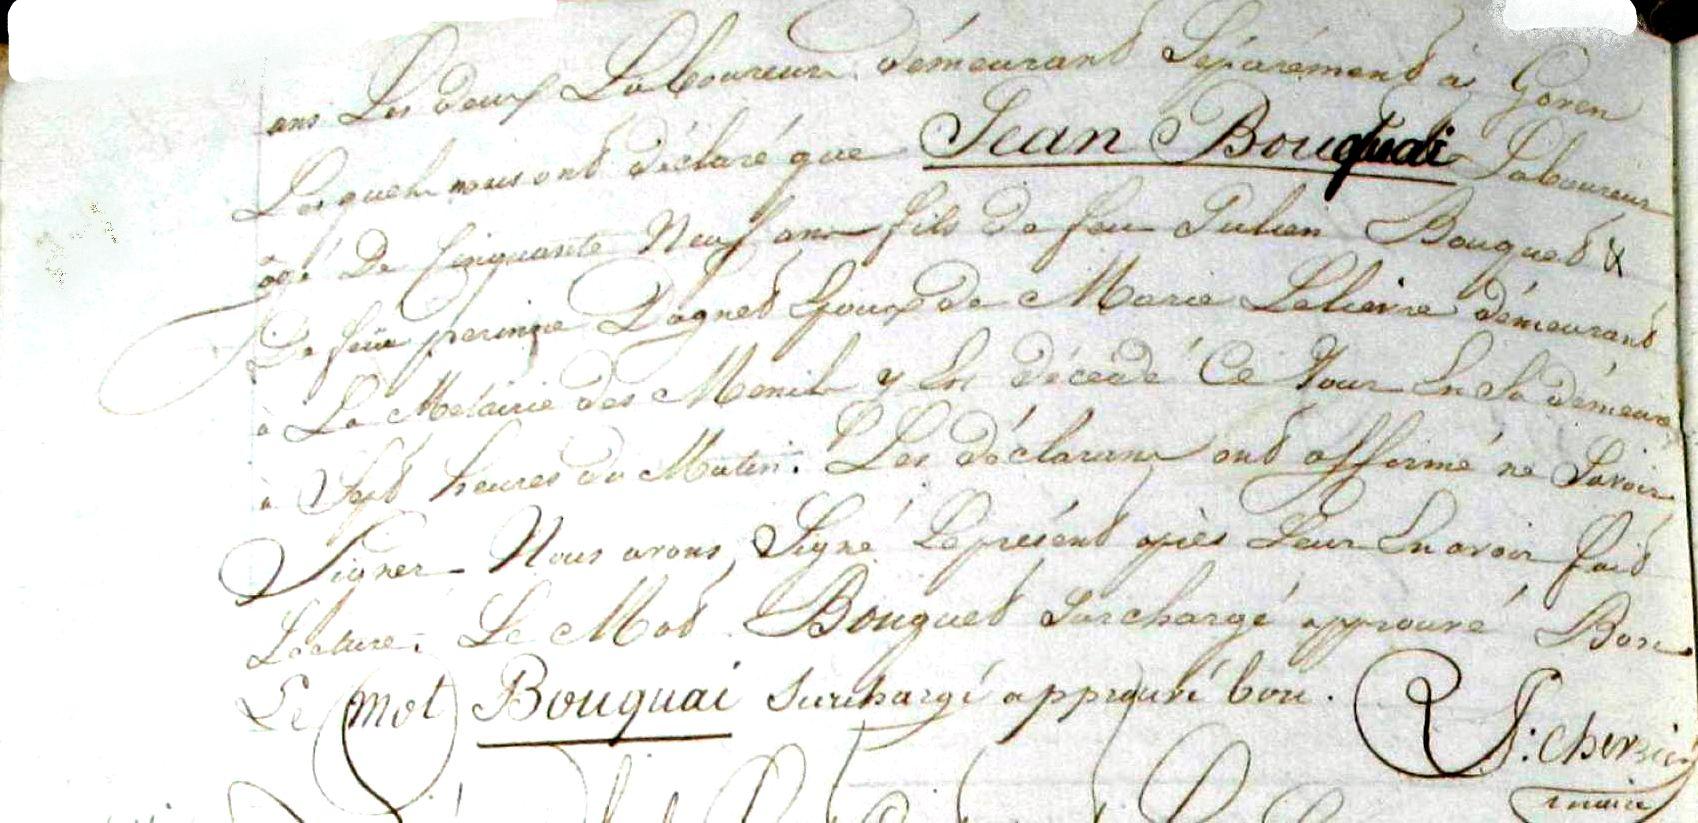 ans Les deux Laboureurs demeurant Séparément à Goven
Lesquels nous ont déclaré que Jean Bouquai Laboureur
âgé De Cinquante Neuf ans fils de feu Julien Bouquet &
De feüe perinne Dagnet Epoux de Marie Lelievre démeurant
à La Metairie des Menils y Est décédé Ce Jour En Sa démeure
à Sept heures du Matin. Les déclarans ont affirmé ne Savoir
Signer Nous avons Signé Le présent après Leur En avoir fait
Lecture. Le Mot Bouquet surchargé approuvé Bon
Le mot Bouquai surchargé approuvé bon.
maire